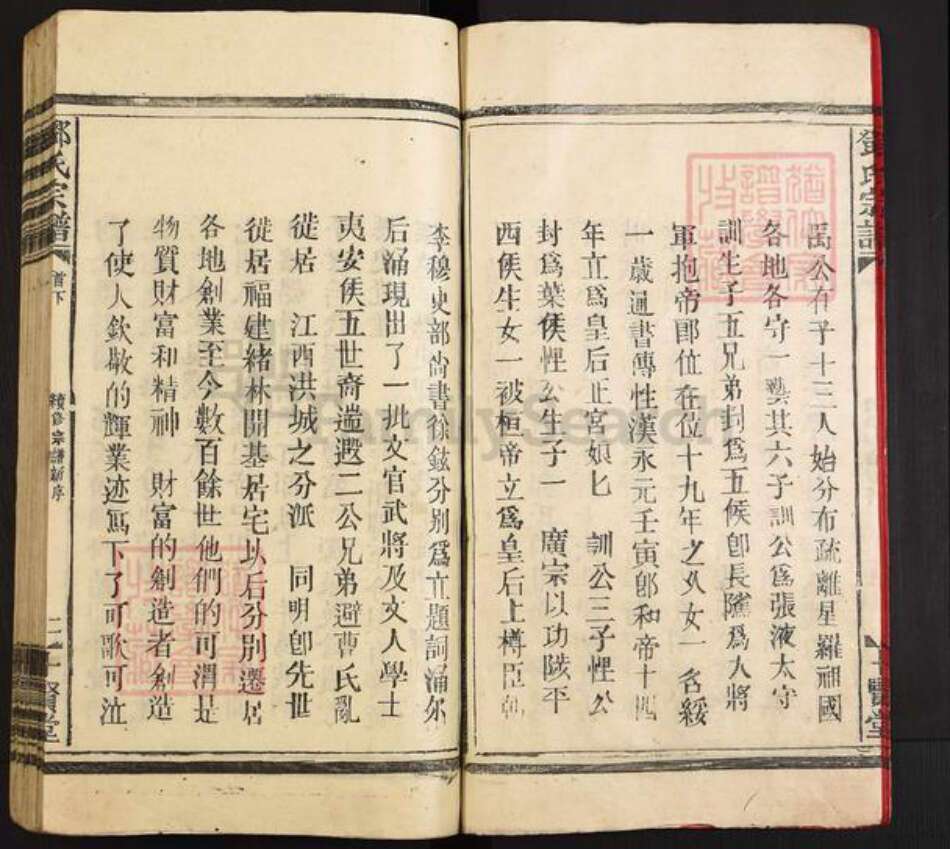 鄧氏宗譜
禹公有子十三人始分布疏離星羅祖國
各地各守一藝其六子訓公爲張液太守
訓生子五兄弟封爲五侯卽長隲爲大將
軍抱帝卽位在位十九年之久女一名綏
一歲通書傳性漢永元壬寅卽和帝十四
年立爲皇后正宮娘匕 訓公三子悝公
封爲葉侯悝公生子一 廣宗以功陞平
西侯生女一被桓帝立爲皇后上樽臣朝
李穆吏部尙書徐鉉分別爲立題詞涌尔
后涌現出了一批文官武將及文人學士
夷安侯五世裔遣遐二公兄弟避曹氏亂
徙居 江西洪城之分派 同明卽先世
徙居福建緒林開基居宅以后分別遷居
各地創業至今數百餘世他們的可渭是
物質財富和精神 財富的創造者創造
了使人欽敬的輝業迹寫下了可歌可泣
鄧氏宗譜
首下
續修宗譜新序
二
賢堂
FamilySearch